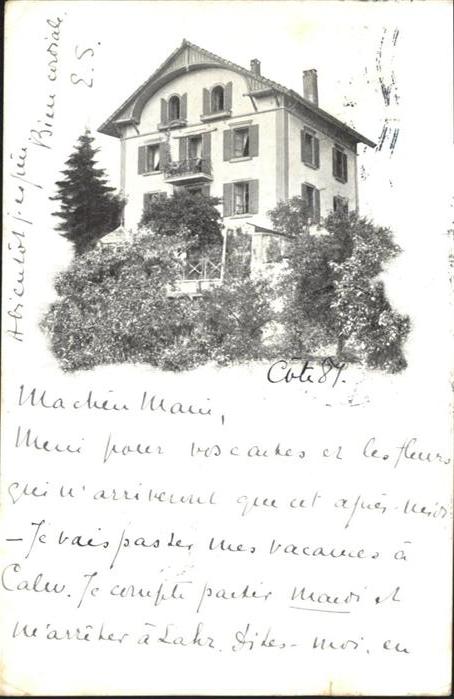 Côte 87.
Ma chère Marie,
Merci pour vos cartes et les fleurs
qui n'arriveront que cet après-midi
– Je vais passer mes vacances à
Calw. Je compte partir mardi et
m'arrêter à Lahr. Dites-moi, en
A bientôt j'espère
Bien cordiale.
E. S.